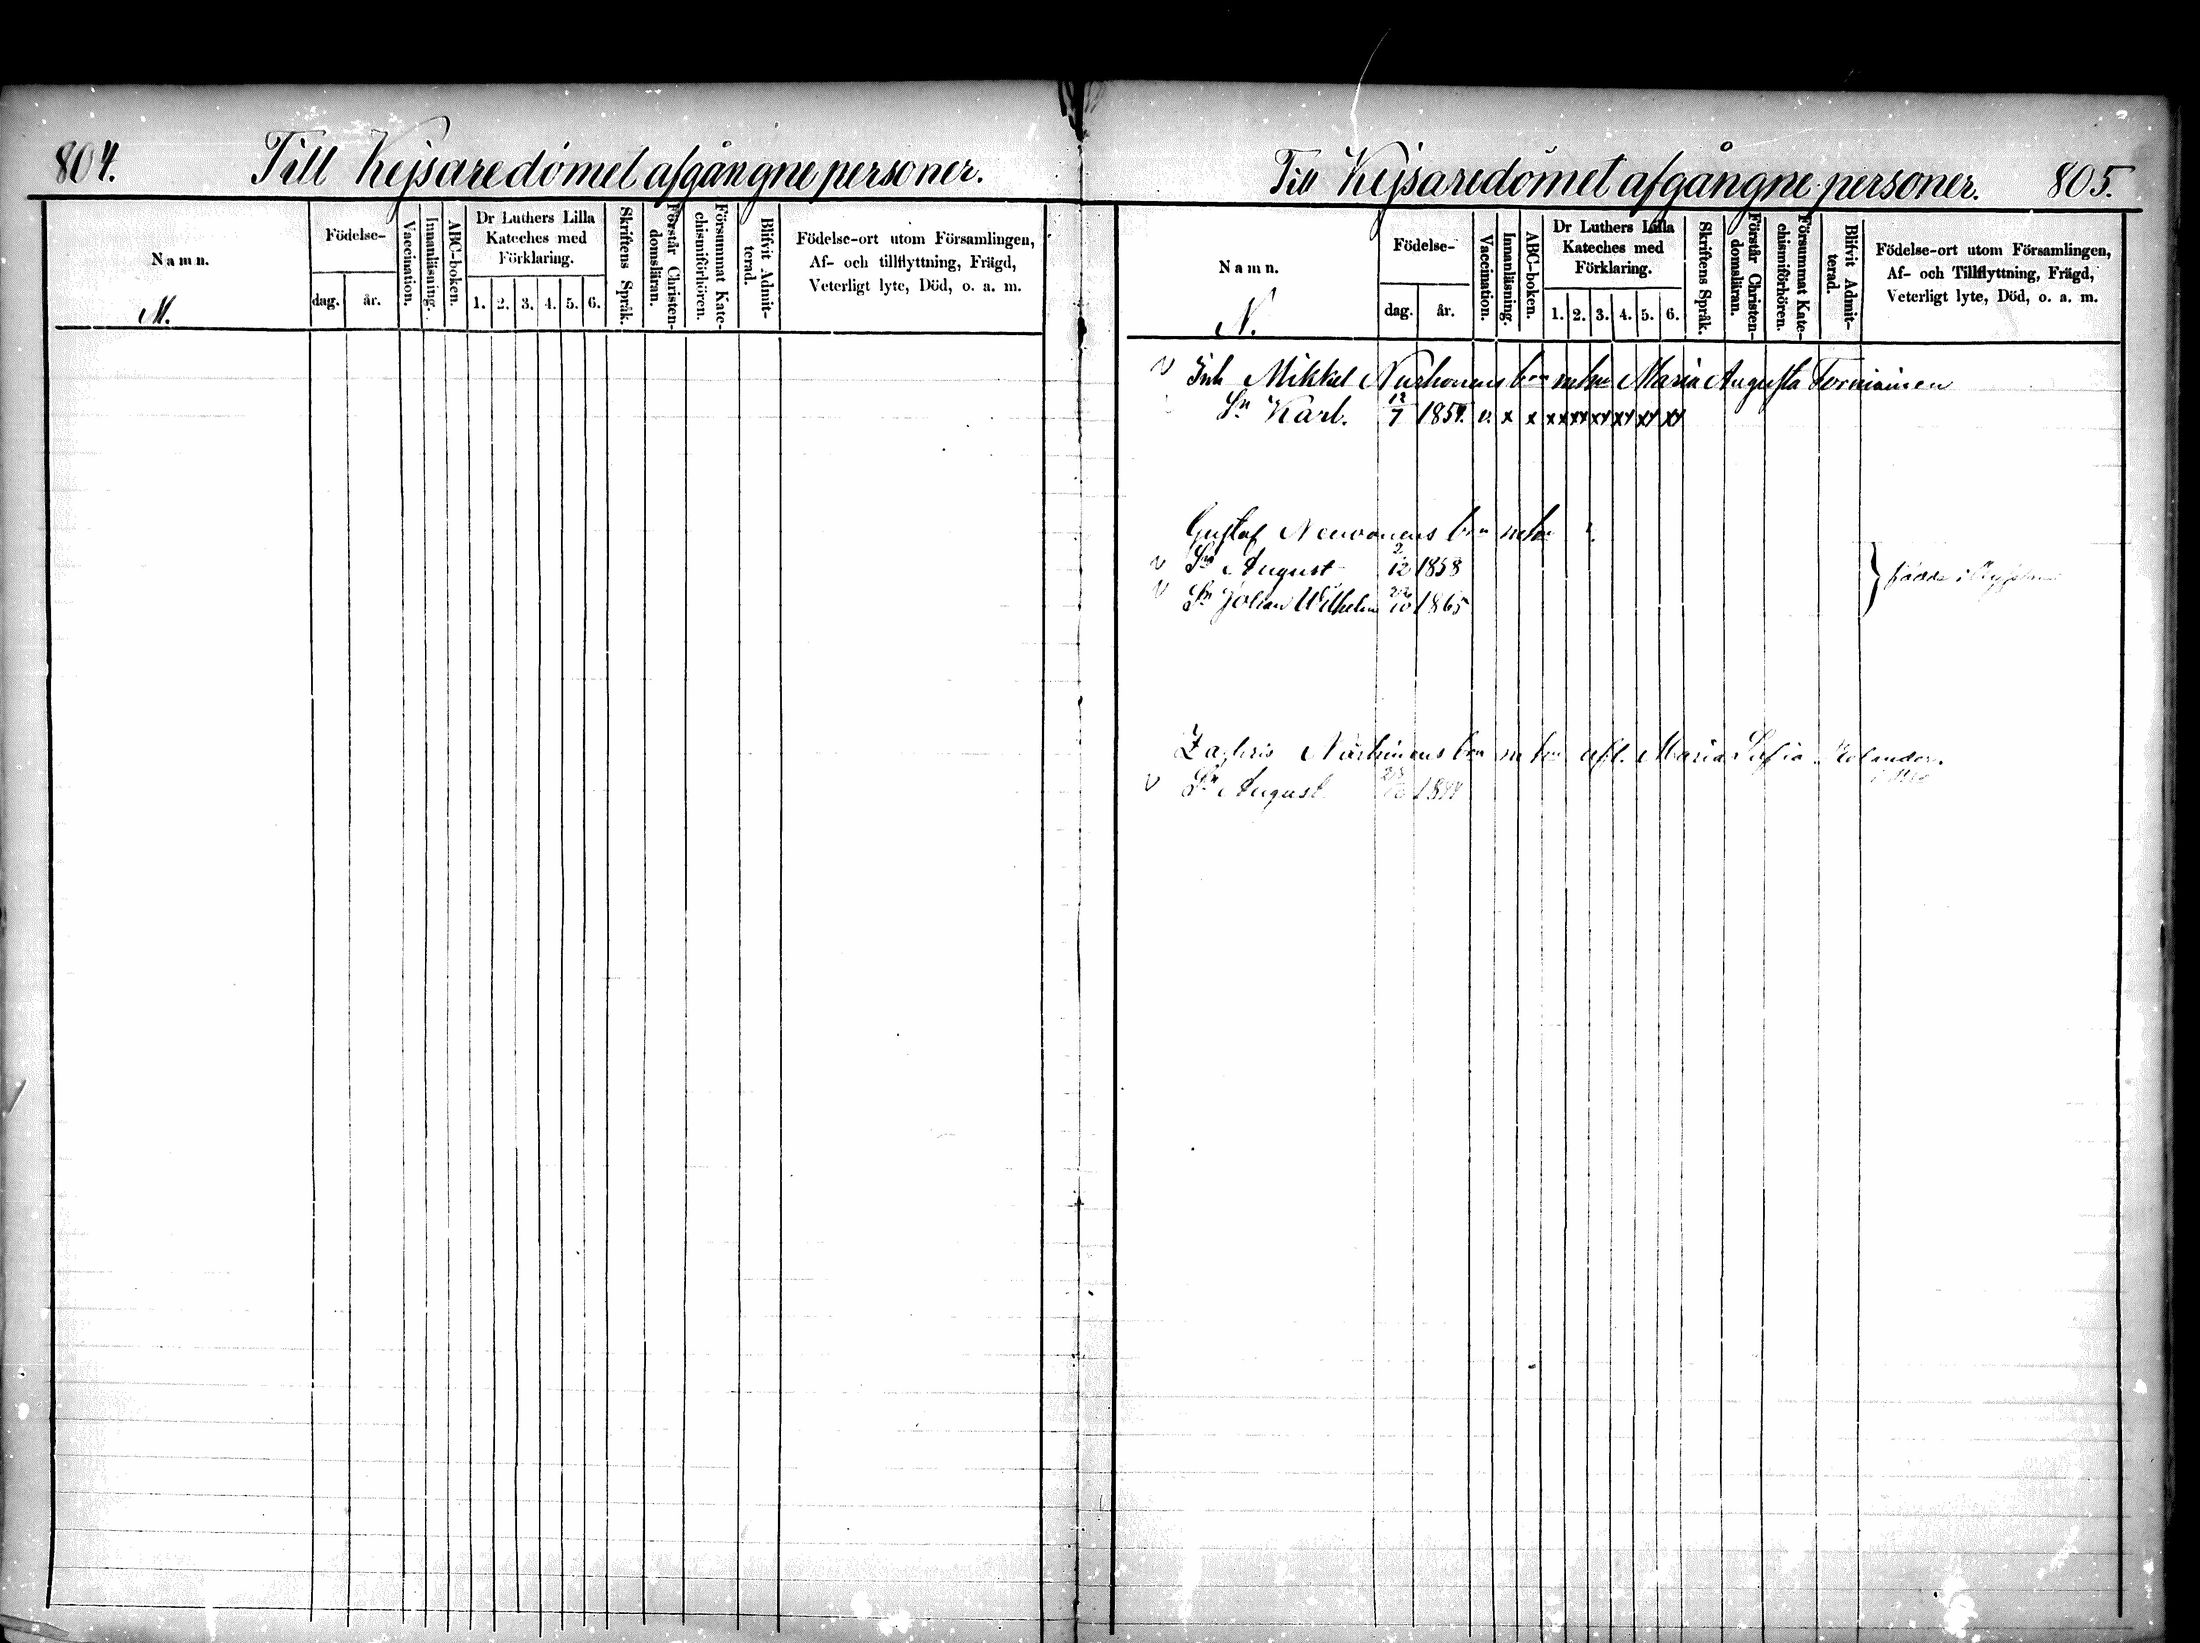 804. Till Kejsaredömet afgångne personer.
Namn.
M.
Födelse-
dag. år.
Vaccination.
Innanläsning.
ABC-boken.
Dr Luthers Lilla
Kateches med
Förklaring.
1. 2. 3. 4. 5. 6.
Skriftens Språk.
Förstår Christen-
domsläran.
Försummat Kate-
chismiförhören.
Blifvit Admit-
terad.
Födelse-ort utom Församlingen,
Af- och tillflyttning, Frägd,
Veterligt lyte, Död, o. a. m.
Till Kejsaredömet afgångne personer. 805.
Namn.
N.
Födelse-
dag. år.
Vaccination.
Innanläsning.
ABC-boken.
Dr Luthers Lilla
Kateches med
Förklaring.
1. 2. 3. 4. 5. 6.
Skriftens Språk.
Förstår Christen-
domsläran.
Försummat Kate-
chismiförhören.
Blifvit Admit-
terad.
Födelse-ort utom Församlingen,
Af- och Tillflyttning, Frägd,
Veterligt lyte, Död, o. a. m.
v Inh Mikkel Maria Augusta Torniainen
Sn Karl. 12/7 1854. v. x x xx xx xx xx xx xx
Gustaf ?
v Sn August 2/12 1858
v Sn Johan Wilhelm 10 1865
Maria Sofia
v Sn August